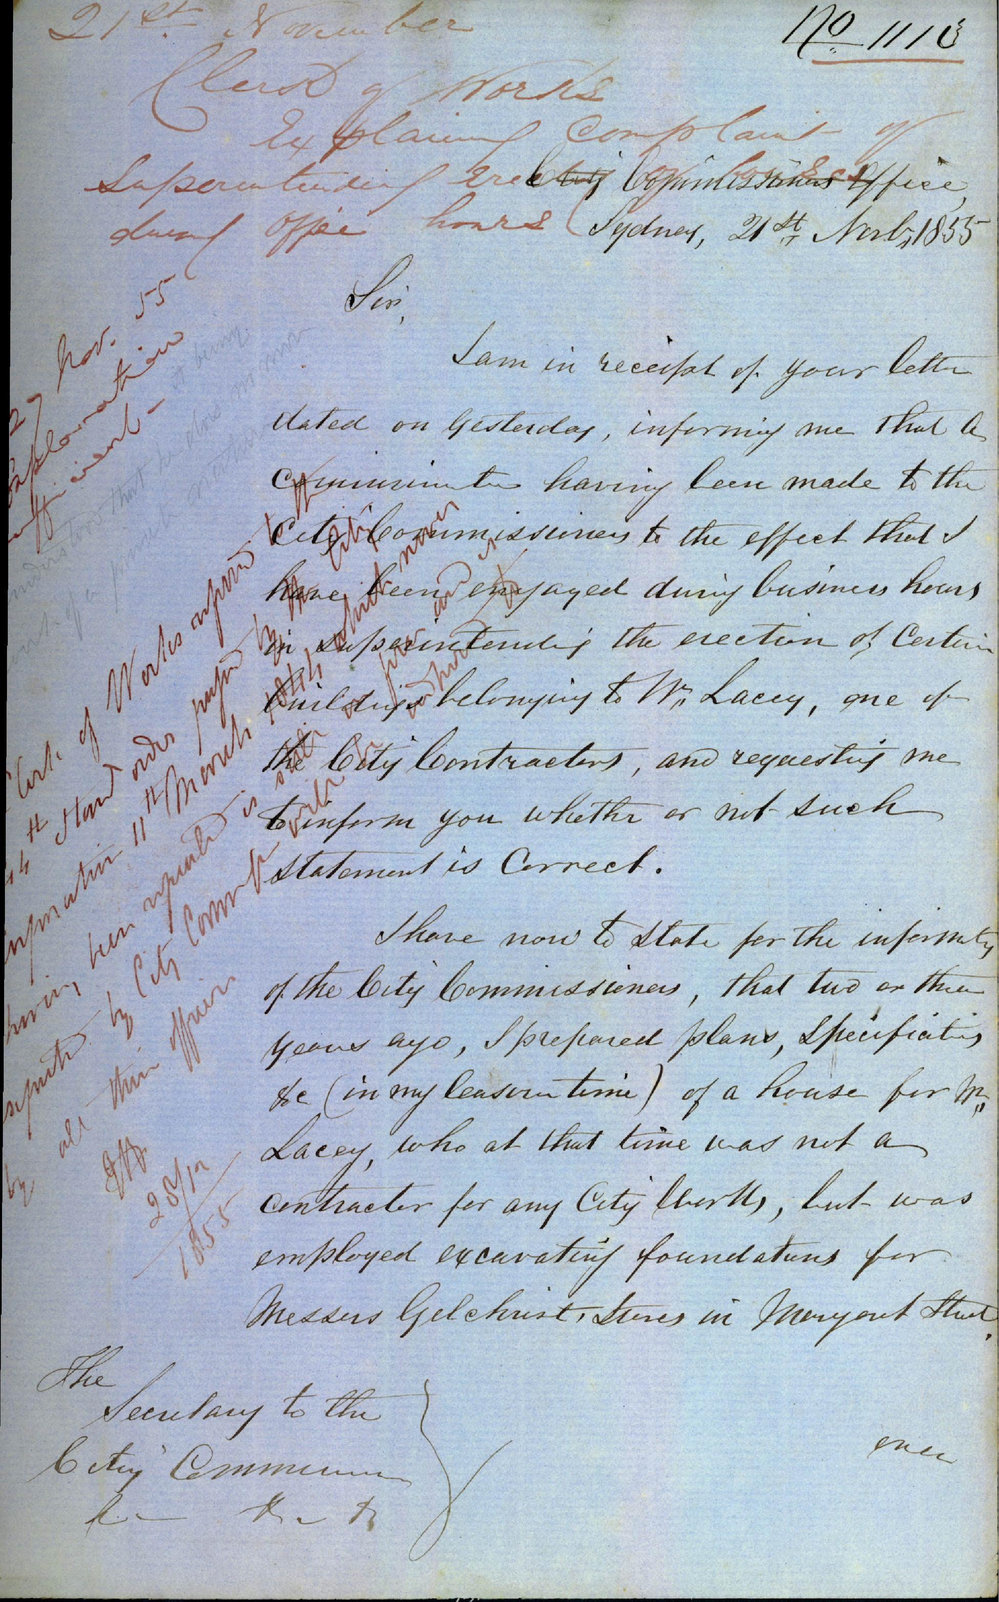 No 1113
21st November
Clerk of Works
Explaining complaint of
Superintending Erection of houses
during office hours
City Commissioners Office,
Sydney, 21st Novbr, 1855
Sir,
I am in receipt of your letter
dated on Yesterday, informing me that a
having been made to the
City Commissioners to the effect that I
have been engaged during business hours
in superintending the erection of Certain
buildings belonging to Wm Lacey, one of
the City Contractors, and requesting me
to inform you whether or not such
statement is Correct.
I have now to state for the information
of the City Commissioners, that two or three
years ago, I prepared plans, Specifications
&c (in my leasure time) of a house for Mr
Lacey, who at that time was not a
contractor for any City Works, but was
employed excavating foundations for
Messers Gilchrist, Stores in Margaret Street.
The
Secretary to the
City Commissioners
&c &c &c
over
27 Nov. 55
Explanation
sufficient
Clerk of Works
14th Stand order passed by the City
Corporation 11th March
having been repealed is still in force and is
by City Commrs
by all their officers
28/12
1855